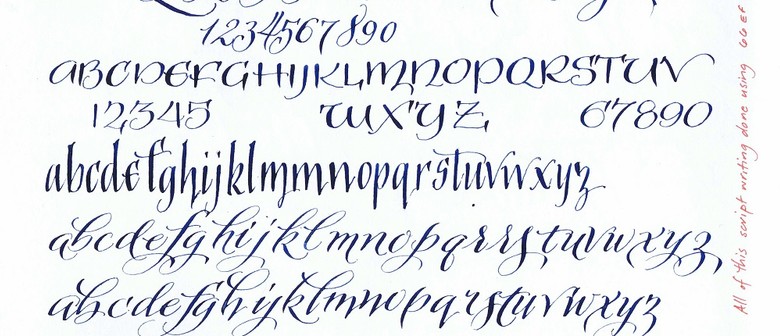 1234567890
ABCDEFGHIJKLMNOPQRSTUV
12345 WXYZ 67890
abcdefghijklmmnopqrstuvwxyz
abcdefghijklmnopqrrstuvwxyz
abcdefghijklmnopqrstuvwxyz
All of this script writing done using 66 EF